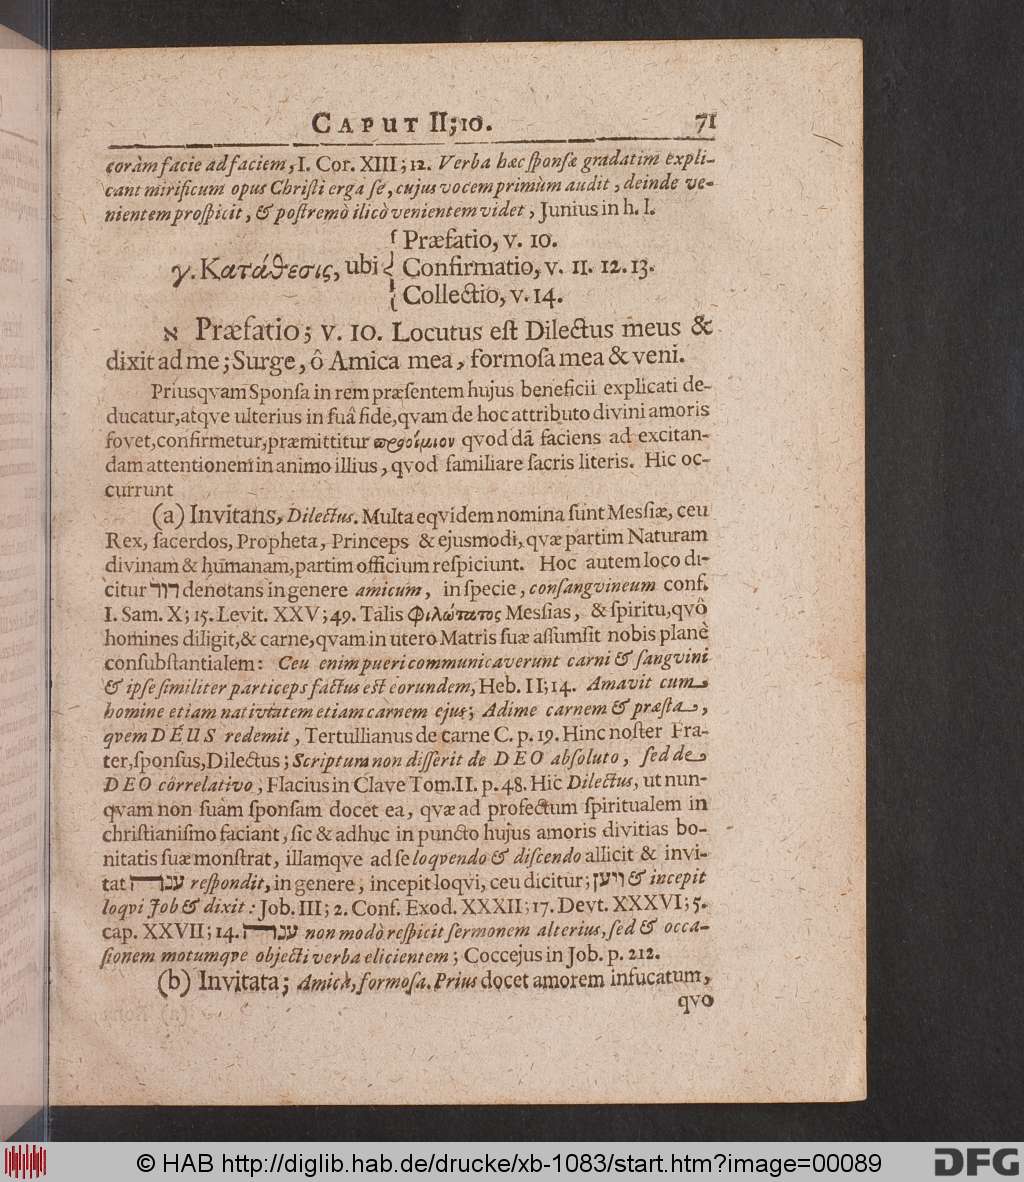 CAPUT II; 10. 71
coràm facie ad faciem, I. Cor. XIII; 12. Verba hæc ſponſæ gradatim expli-
cant mirificum opus Chriſti erga ſe, cujus vocem primùm audit, deinde ve-
nientem proſpicit, & poſtremò ilicò venientem videt, Junius in h. l.
Præfatio, v. 10.
γ. Κατάθεσις, ubi Confirmatio, v. 11. 12. 13.
Collectio, v. 14.
א Præfatio; v. 10. Locutus eſt Dilectus meus &
dixit ad me; Surge, ô Amica mea, formoſa mea & veni.
Priusqvam Sponſa in rem præſentem hujus beneficii explicati de-
ducatur, atqve ulterius in ſuâ fide, qvam de hoc attributo divini amoris
fovet, confirmetur, præmittitur προοίμιον qvod dã faciens ad excitan-
dam attentionem in animo illius, qvod familiare ſacris literis. Hic oc-
currunt
(a) Invitans, Dilectus. Multa eqvidem nomina ſunt Meſſiæ, ceu
Rex, ſacerdos, Propheta, Princeps & ejusmodi, qvæ partim Naturam
divinam & humanam, partim officium reſpiciunt. Hoc autem loco di-
citur דוד denotans in genere amicum, in ſpecie, conſangvineum conf.
I. Sam. X; 15. Levit. XXV; 49. Talis Φιλώτατος Meſſias, & ſpiritu, qvô
homines diligit, & carne, qvam in utero Matris ſuæ aſſumſit nobis planè
conſubſtantialem: Ceu enim pueri communicaverunt carni & ſangvini
& ipſe ſimiliter particeps factus eſt eorundem, Heb. II; 14. Amavit cum
homine etiam nativitatem etiam carnem ejus; Adime carnem & præſta,
qvem DEUS redemit, Tertullianus de carne C. p. 19. Hinc noſter Fra-
ter, ſponſus, Dilectus; Scriptura non diſſerit de DEO abſoluto, ſed de
DEO côrrelativo, Flacius in Clave Tom. II. p. 48. Hic Dilectus, ut nun-
qvam non ſuam ſponſam docet ea, qvæ ad profectum ſpiritualem in
chriſtianiſmo faciant, ſic & adhuc in puncto hujus amoris divitias bo-
nitatis ſuæ monſtrat, illamqve ad ſe loqvendo & diſcendo allicit & invi-
tat ענה reſpondit, in genere, incepit loqvi, ceu dicitur; ויען & incepit
loqvi Job & dixit: Job. III; 2. Conf. Exod. XXXII; 17. Devt. XXXVI; 5.
cap. XXVII; 14. ענה non modò reſpicit ſermonem alterius, ſed & occa-
ſionem motumqve objecti verba elicientem; Coccejus in Job. p. 212.
(b) Invitata; Amica, formoſa. Prius docet amorem infucatum,
qvo
© HAB http://diglib.hab.de/drucke/xb-1083/start.htm?image=00089 DFG